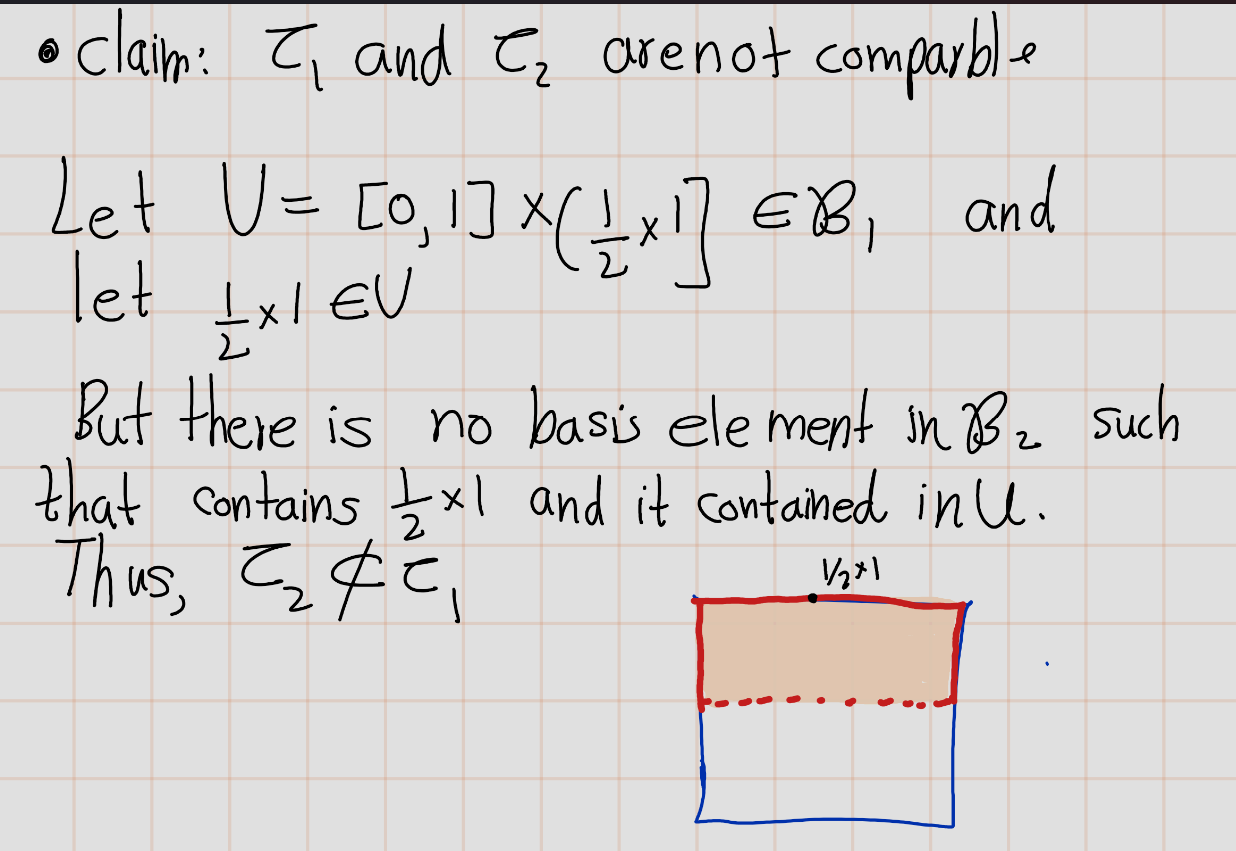 • claim: τ₁ and τ₂ are not comparble
Let U = [0,1] × (1/2 × 1] ∈ ℬ₁ and
let 1/2 × 1 ∈ U
But there is no basis element in ℬ₂ such
that contains 1/2 × 1 and it contained in U.
Thus, τ₂ ⊄ τ₁
1/2 × 1